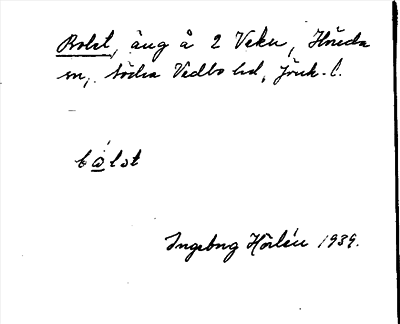 Bolst, äng å 2 Veku, Hvreda
sn, Södra Vedbo hd, Jönk. l.
bω̲lst
Ingeborg Hörlén 1939.